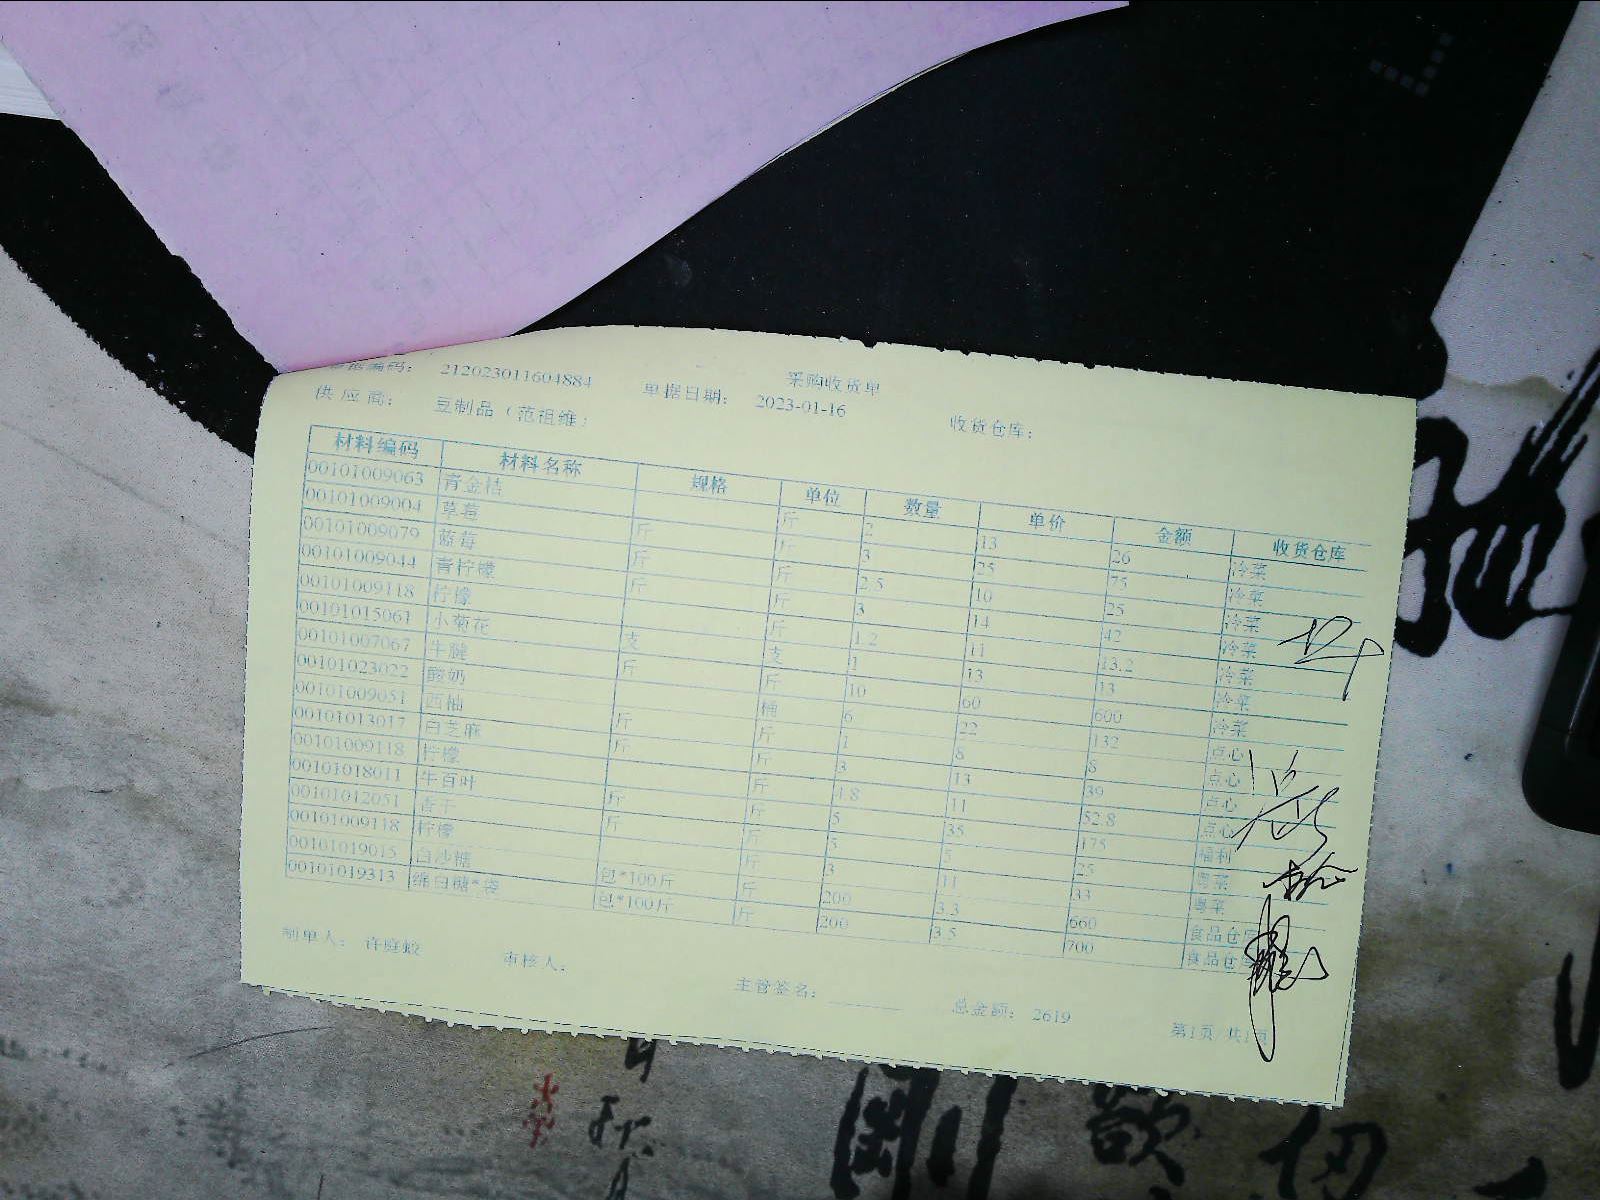 采购收货单
单据编码： 212023011604884 单据日期： 2023-01-16 收货仓库：
供应商： 豆制品（范祖维）
材料编码 材料名称 规格 单位 数量 单价 金额 收货仓库
00101009063 青金桔 斤 2 13 26 冷菜
00101009004 草莓 斤 斤 3 25 75 冷菜
00101009079 蓝莓 斤 斤 2.5 10 25 冷菜
00101009044 青柠檬 斤 斤 3 14 42 冷菜
00101009118 柠檬 斤 1.2 11 13.2 冷菜
00101015061 小菊花 支 支 1 13 13 冷菜
00101007067 牛腱 斤 斤 10 60 600 冷菜
00101023022 酸奶 桶 6 22 132 点心
00101009051 西柚 斤 斤 1 8 8 点心
00101013017 白芝麻 斤 斤 3 13 39 点心
00101009118 柠檬 斤 4.8 11 52.8 点心
00101018011 牛百叶 斤 斤 5 35 175 福利
00101012051 香干 斤 斤 5 5 25 粤菜
00101009118 柠檬 斤 3 11 33 粤菜
00101019015 白沙糖 包*100斤 斤 200 3.3 660 食品仓库
00101019313 绵白糖*袋 包*100斤 斤 200 3.5 700 食品仓库
制单人： 许庭蛟 审核人： 主管签名： 总金额： 2619 第1页/共1页